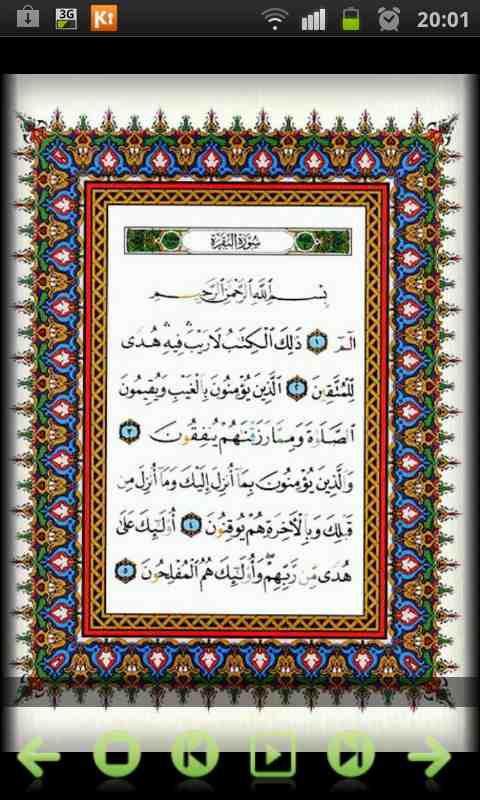 3G K 20:01
سُورَةُ الْبَقَرَةِ
بِسْمِ اللَّهِ الرَّحْمَٰنِ الرَّحِيمِ
الٓمٓ ١ ذَٰلِكَ الْكِتَٰبُ لَا رَيْبَ ۛ فِيهِ ۛ هُدًى
لِّلْمُتَّقِينَ ٢ الَّذِينَ يُؤْمِنُونَ بِالْغَيْبِ وَيُقِيمُونَ
الصَّلَوٰةَ وَمِمَّا رَزَقْنَٰهُمْ يُنفِقُونَ ٣
وَالَّذِينَ يُؤْمِنُونَ بِمَا أُنزِلَ إِلَيْكَ وَمَا أُنزِلَ مِن
قَبْلِكَ وَبِالْآخِرَةِ هُمْ يُوقِنُونَ ٤ أُولَٰئِكَ عَلَىٰ
هُدًى مِّن رَّبِّهِمْ ۖ وَأُولَٰئِكَ هُمُ الْمُفْلِحُونَ ٥